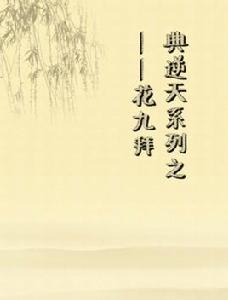 典逆天系列之
——花九拜